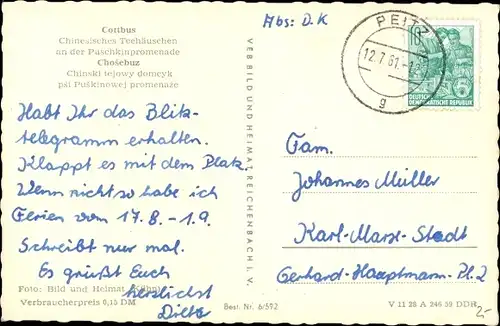 Cottbus
Chinesisches Teehäuschen
an der Puschkinpromenade
Chośebuz
Chinski tejowy domcyk
psi Puškinowej promenaze
Habt Ihr das Blitz-
telegramm erhalten.
Klappt es mit dem Platz.
Wenn nicht so habe ich
Ferien vom 17.8. - 1.9.
Schreibt nur mal.
Es grüßt Euch
herzlichst
Dieter
Foto: Bild und Heimat
Verbraucherpreis 0,15 DM
VEB BILD UND HEIMAT REICHENBACH i. V.
Best. Nr. 6/592
Abs: D.K
PEITZ
12.7.61.-1
g
10
5
DEUTSCHE
DEMOKRATISCHE REPUBLIK
Fam.
Johannes Müller
Karl-Marx-Stadt
Gerhard-Hauptmann-Pl. 2
V 11 28 A 246 59 DDR
2,-